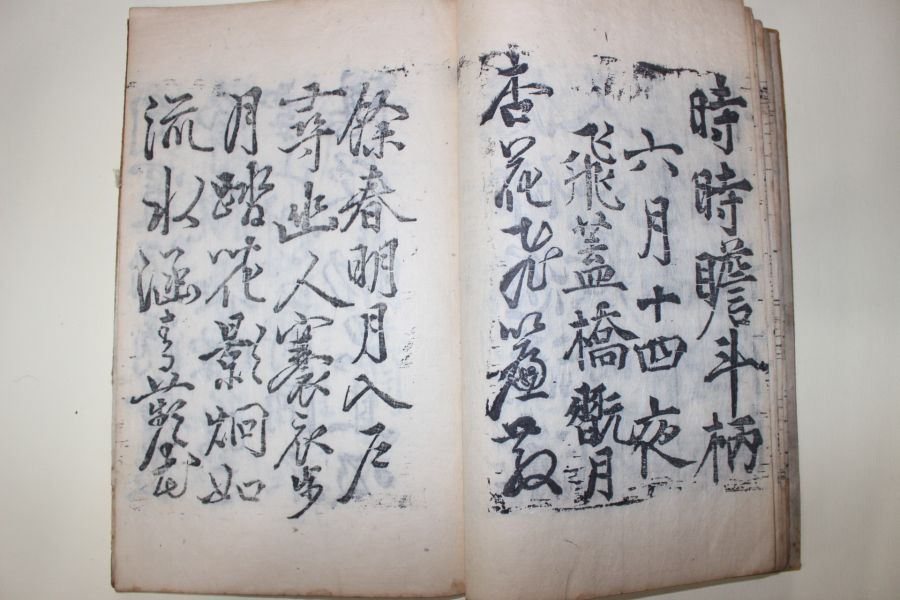 時時瞻斗柄
六月十四夜
飛蓋橋翫月
杏花飛簾散
餘春明月入戶
尋幽人褰衣步
月踏花影炯如
流水涵青蘋花